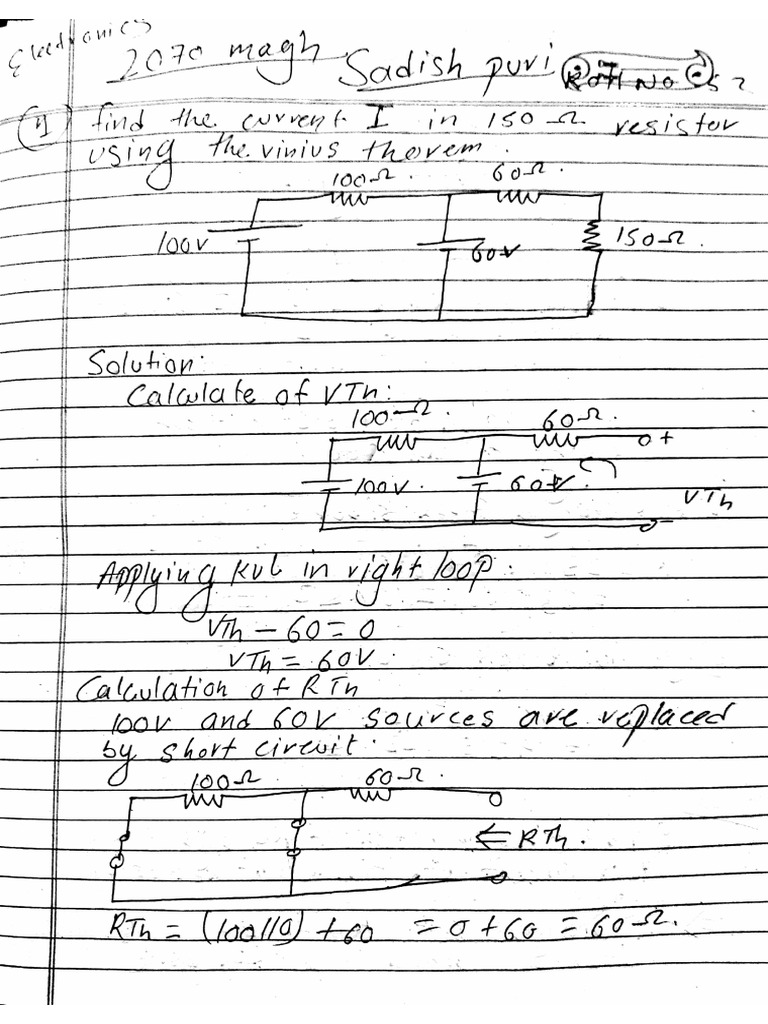 Electronics
2070 magh Sadish puri Roll No 52
1) find the current I in 150Ω resistor
using thevinius thorem.
100Ω. 60Ω.
100V 60V 150Ω.
Solution:
Calculate of VTh:
100Ω. 60Ω.
+
100V. 60V
VTh
-
Applying KVL in right loop.
VTh - 60 = 0
VTh = 60V.
Calculation of RTh
100V and 60V sources are replaced
by short circuit.
100Ω 60Ω.
⇐ RTh.
RTh = (100110) + 60 = 0 + 60 = 60Ω.